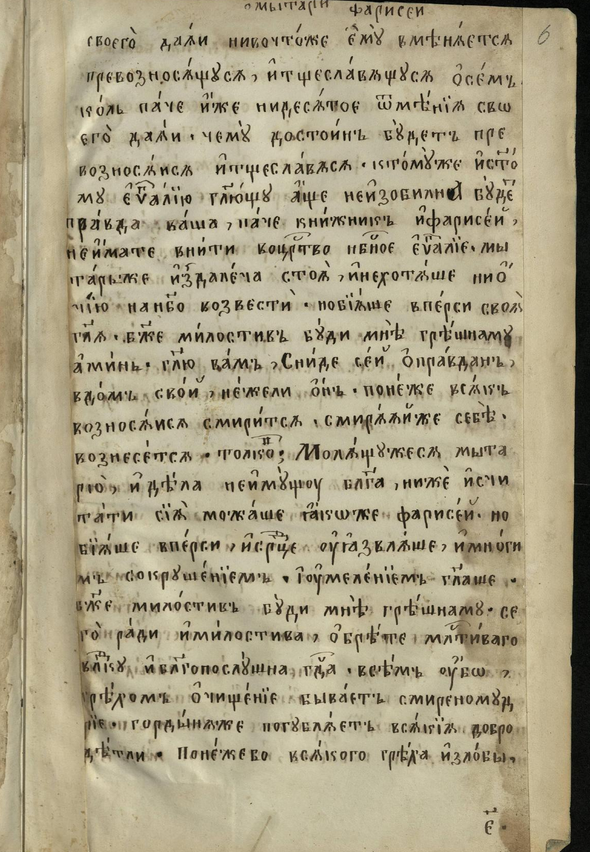 ѡмытари фарисеи
6
своего̀ дая́и нивочто́же є҆мꙋ̀ вмѣня́етсѧ
превозносѧ́щꙋсѧ, и҆тщеславѧ́щꙋсѧ ѻ҆се́мъ.
ко́ль па́че и҆́же нидесѧ́тое ѿмѣ́нїѧ сво
его̀ дая́и · чемꙋ̀ досто́инъ бꙋ́детъ пре
возносѧ́исѧ и҆тщеславѧ́сѧ · ктомꙋ́же и҆сто́
мꙋ є҆ѵⷢ҇а́лїю гл҃ющꙋ а҆́ще неи҆зоби́лна бꙋ́деⷮ
пра́вда ва́ша, па́че кни́жникъ и҆фарисе́й,
неи́мате вни́ти воцрⷭ҇тво нбⷭ҇ное є҆ѵⷢ҇а́лїе · мы
та́рьже и҆здале́ча стоѧ̀, и҆нехотѧ́ше ниѻ҆
чїю нанб҃о возвести · нобїѧ́ше впе́рси своѧ̀
гл҃ѧ · бж҃е ми́лостивъ бꙋ́ди мнѣ̀ грѣ́шномꙋ
а҆ми́нь · гл҃ю ва́мъ, Сни́де се́й ѻ҆пра́вданъ,
вдо́мъ сво́й, не́жели ѻ҆́нъ · поне́же всѧ́къ
возносѧ́исѧ смири́тсѧ · смирѧ́ѧйже себѐ ·
вознесе́тсѧ · толко́⁘ Молѧ́щꙋжесѧ мыта
рю̀, и҆ дѣ́ла неи҆мꙋ́щоу бл҃га, нижѐ и҆счи
та́ти сїѧ̀ можа́ше ꙗ҆́коже фарисе́й · но
бїѧ́ше впе́рси, и҆срⷣце оу҆ѧзвлѧ́ше, и҆мно́ги
мъ сокрꙋше́нїемъ · і҆оу҆миле́нїемъ гл҃аше ·
бж҃е ми́лостивъ бꙋ́ди мнѣ̀ грѣ́шномꙋ · се
го̀ ра́ди и҆ми́лостива, ѻ҆брѣ́те млⷭ҇тиваго
влⷣкꙋ и҆бл҃гопослꙋ́шна гдⷭ҇а · всѣ́мъ оу҆́бѡ,
грѣхо́мъ ѻ҆чище́нїе быва́етъ смиреномꙋ́д
рїе · горды́нѧже погꙋблѧ́етъ всѧ́кїѧ добро
дѣ́тели · Поне́жебо всѧ́кого грѣха̀ и҆зло́бы,
є҃·